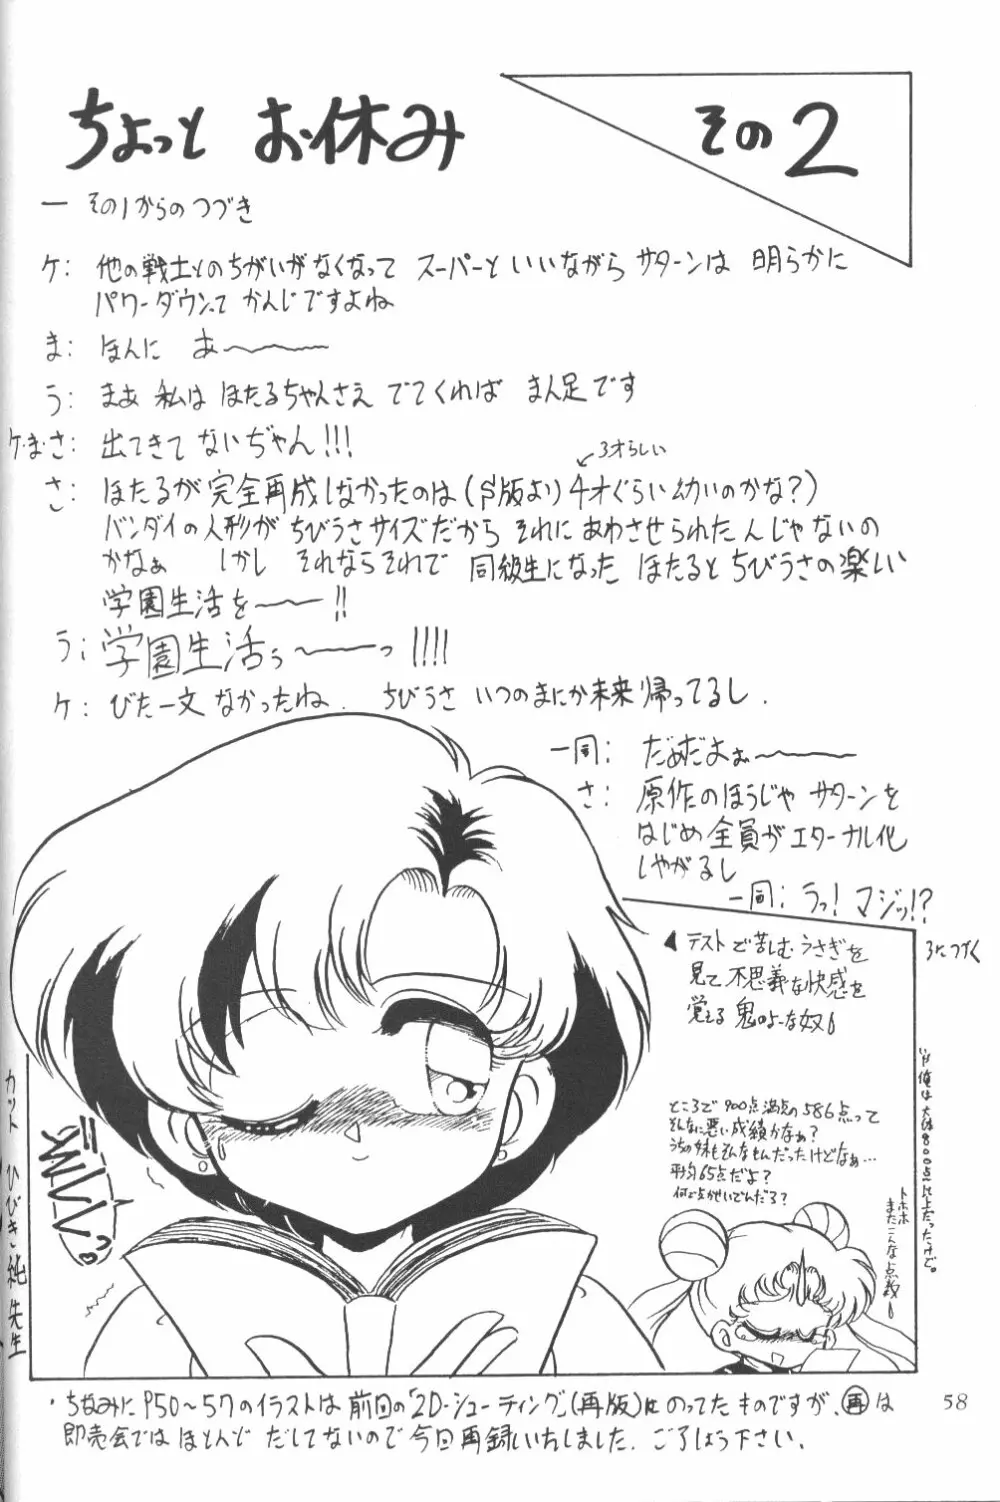 ちょっと お休み
その2
ー その1からのつづき
ケ: 他の戦士とのちがいがなくなって スーパーと いいながら サターンは 明らかに
パワーダウンって かんじですよね
ま: ほんに あ〜〜〜
う: まあ 私は ほたるちゃんさえ でてくれば まん足です
ケ・ま・さ: 出てきて ないぢゃん!!!
3才らしい
さ: ほたるが 完全再成しなかったのは (S版より 4才ぐらい 幼いのかな?)
バンダイの人形が ちびうさサイズだから それに あわさせられたんじゃないの
かなぁ しかし それならそれで 同級生になった ほたると ちびうさの楽しい
学園生活を〜〜!!
う: 学園生活ぅ〜〜っ!!!!
ケ: びた一文 なかったね. ちびうさ いつのまにか未来 帰ってるし.
一同: だめだよぉ〜〜〜
さ: 原作のほうじゃ サターンを
はじめ 全員が エターナル化
しやがるし
一同: うっ! マジッ!?
3につづく
◀ テスト で 苦しむ うさぎを
見て 不思議な快感を
覚える 鬼のよーな奴
ところで 900点満点の 586点って
そんなに悪い成績かなぁ?
うちの妹もそんなもんだったけどなぁ…
平均65点だよ?
何で点がせいでんだろ?
俺は 大体800点以上だったけど。
トホホ
またこんな点数
カット ひびき純 先生
・ちなみに P50〜57のイラストは 前回の「2D・シューティング」(再版)に のってた ものですが、再は
即売会では ほとんど だしてないので 今回 再録いたしました. ごりょうしょう下さい.
58